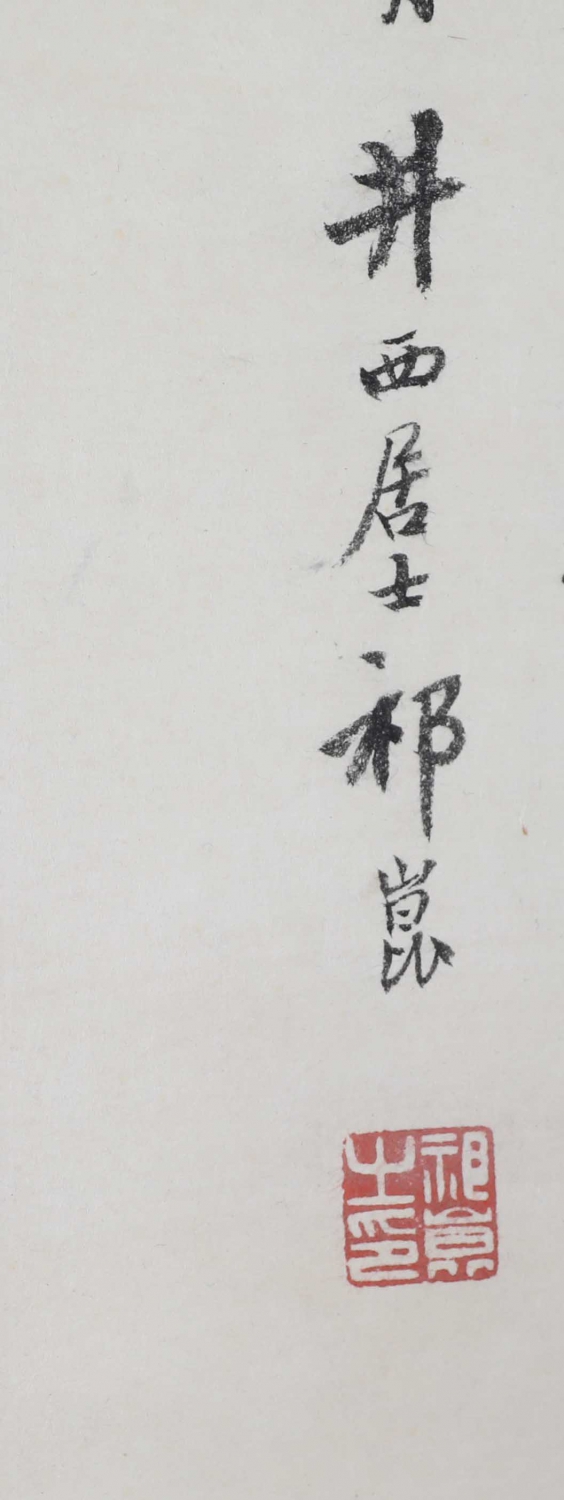 井西居士祁崑
祁崑
之印